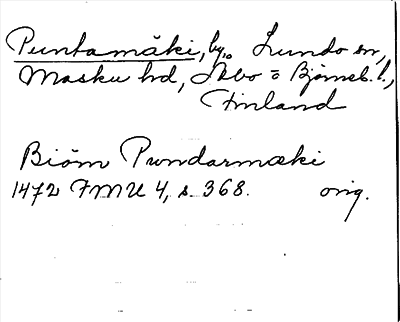 Puntamäki, by, Lundo sn,
Masku hd, Åbo o Björneb. l.,
Finland
Biörn Pundarmæki
1472 FMU 4, s. 368. orig.